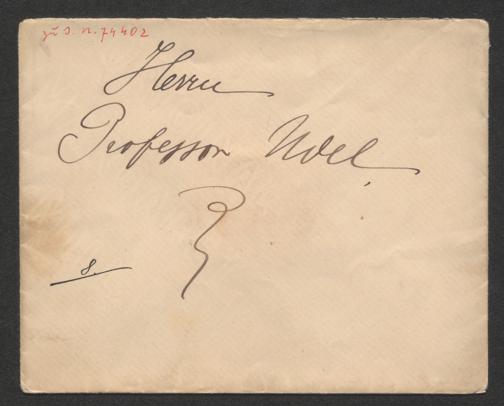 zu I. N. 74402
Herrn
Professor Udel
8.